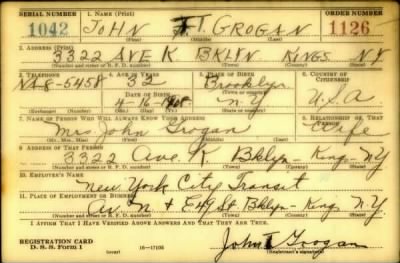 SERIAL NUMBER 1. NAME (Print) ORDER NUMBER
1042 JOHN T. GROGAN 1126
(First) (Middle) (Last)
2. ADDRESS (Print)
3322 AVE K BKLYN KINGS N.Y
(Number and street or R. F. D. number) (Town) (County) (State)
3. TELEPHONE 4. AGE IN YEARS 5. PLACE OF BIRTH 6. COUNTRY OF CITIZENSHIP
NA-8-5458 32 Brooklyn
DATE OF BIRTH (Town or county)
4-16-1908 N.Y U.S.A
(Exchange) (Number) (Mo.) (Day) (Yr.) (State or country)
7. NAME OF PERSON WHO WILL ALWAYS KNOW YOUR ADDRESS 8. RELATIONSHIP OF THAT PERSON
Mrs. John Grogan Wife
(Mr., Mrs., Miss) (First) (Middle) (Last)
9. ADDRESS OF THAT PERSON
3322 Ave. K Bklyn- King NY
(Number and street or R. F. D. number) (Town) (County) (State)
10. EMPLOYER'S NAME
New York City Transit
11. PLACE OF EMPLOYMENT OR BUSINESS
Av. N & E49 St Bklyn- King N.Y
(Number and street or R. F. D. number) (Town) (County) (State)
I AFFIRM THAT I HAVE VERIFIED ABOVE ANSWERS AND THAT THEY ARE TRUE.
REGISTRATION CARD
D. S. S. Form 1 (over) 16—17105 John T Grogan
(Registrant's signature)